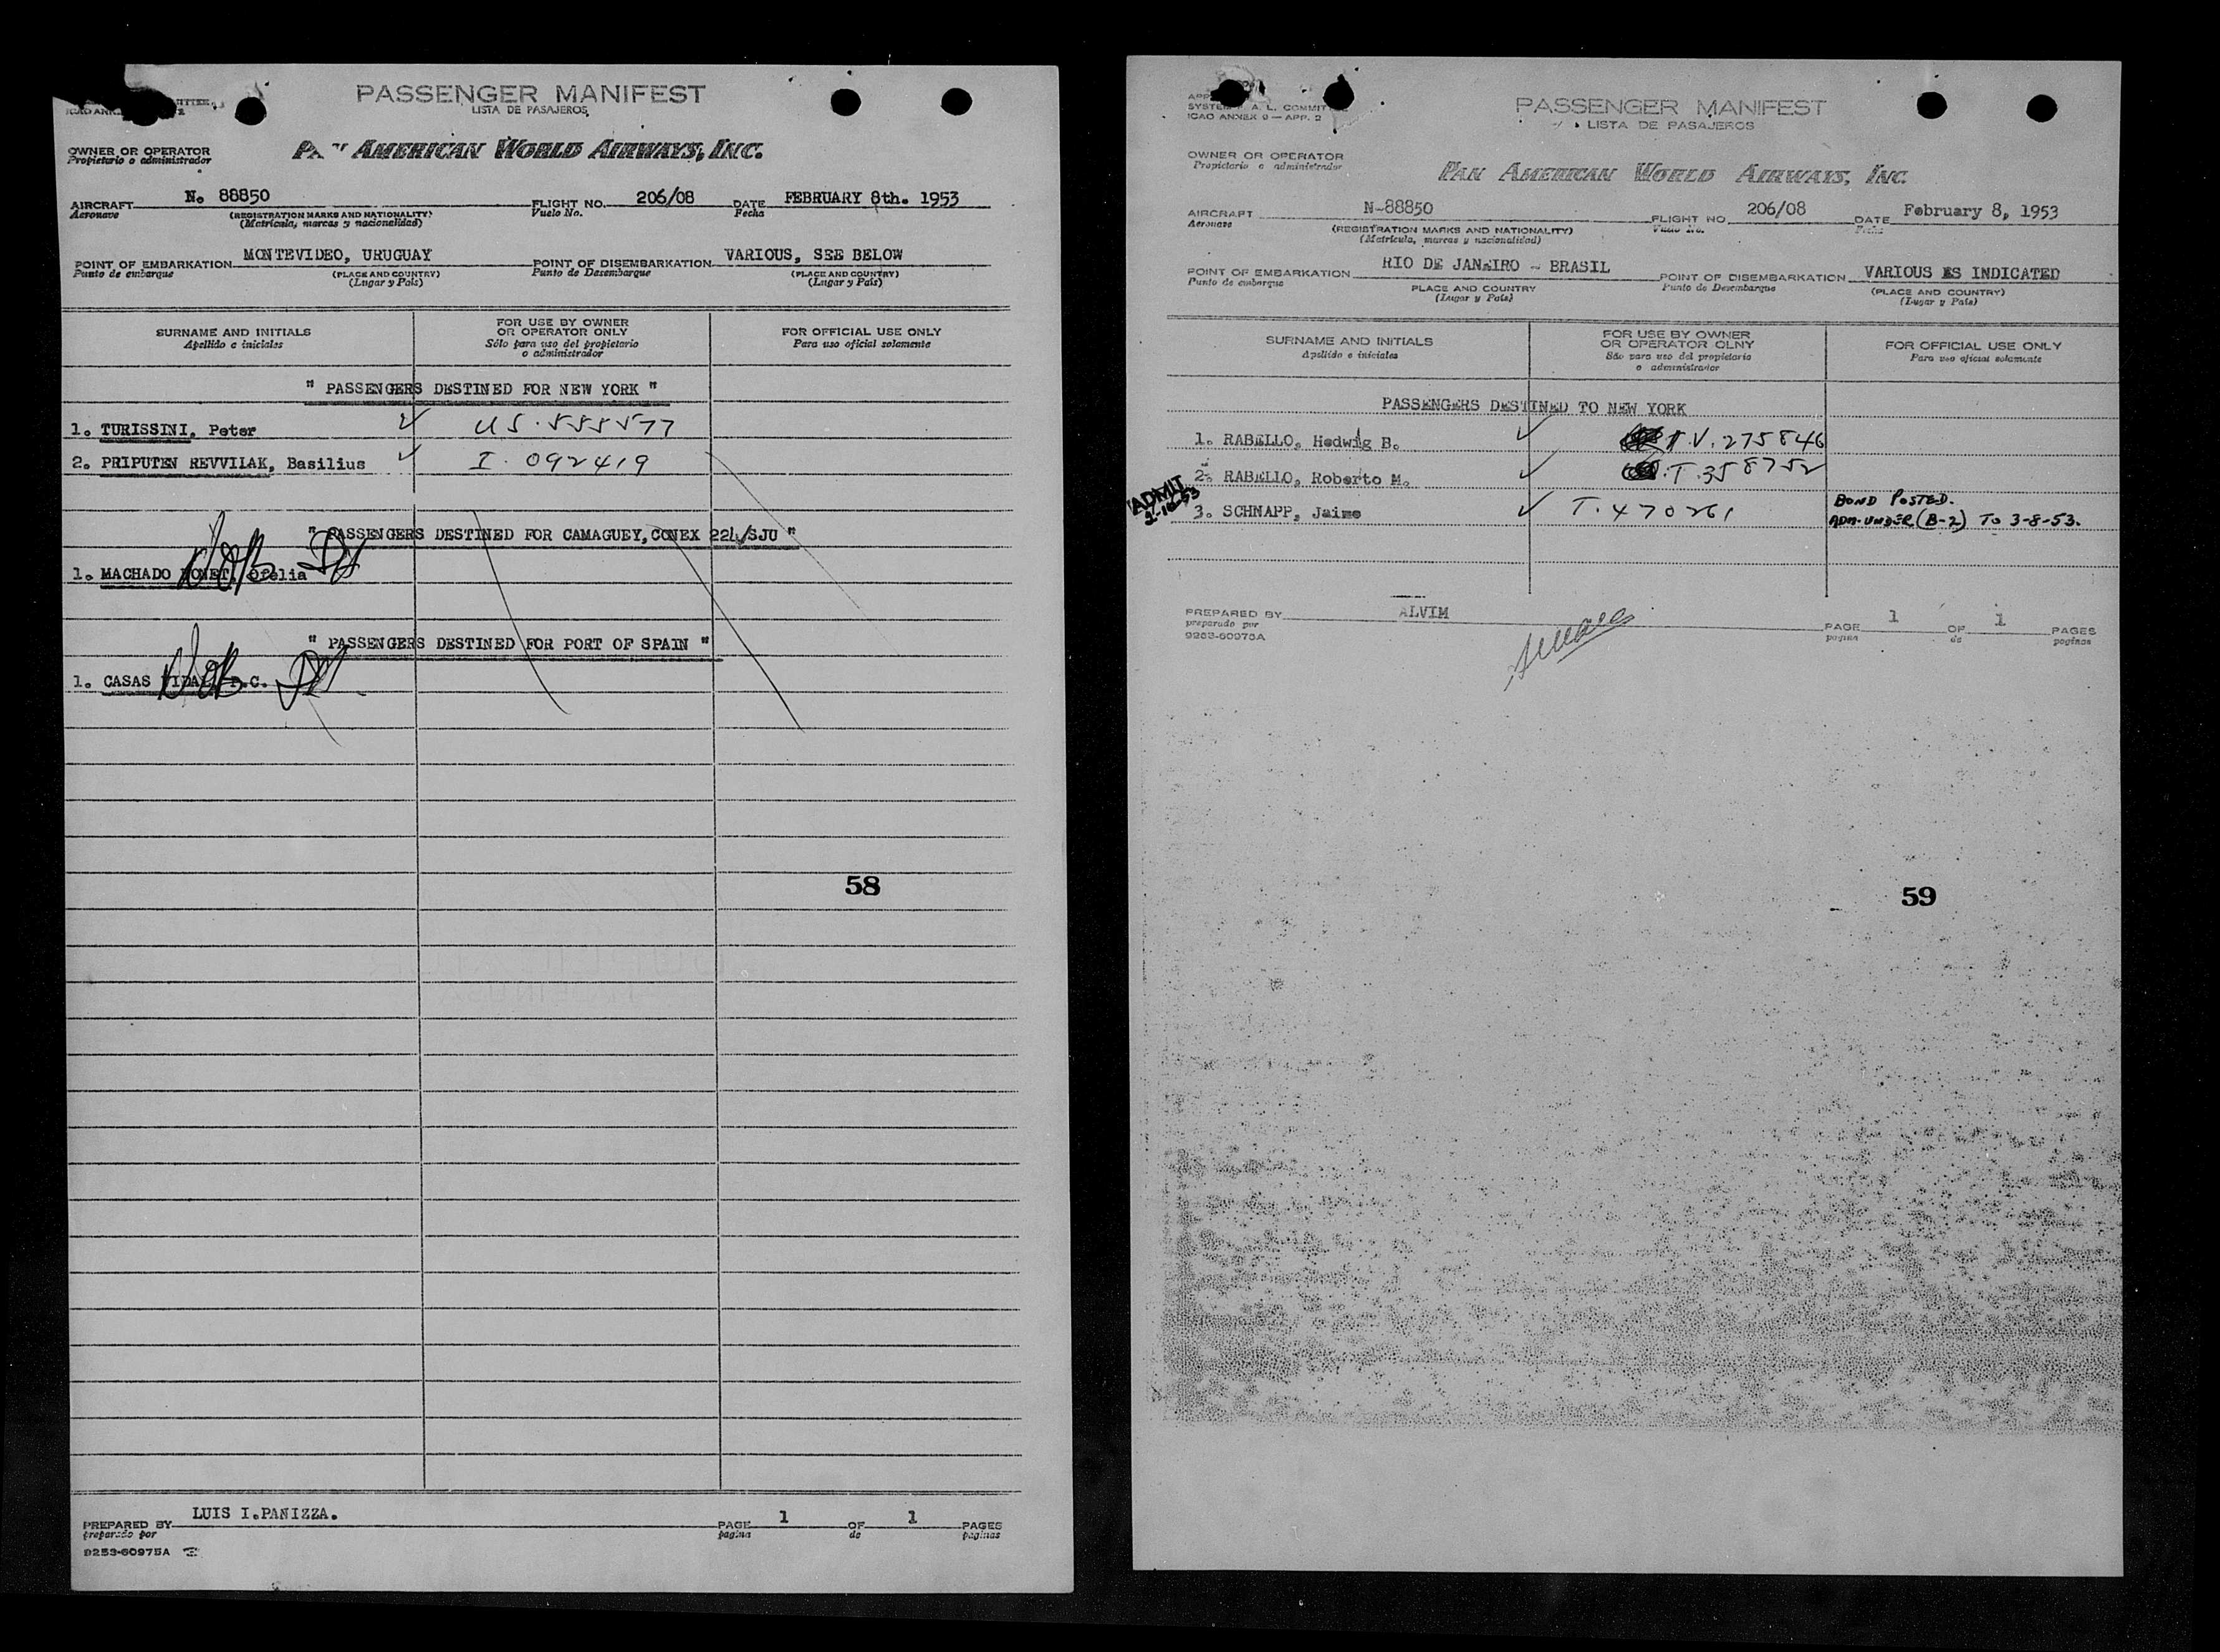 PASSENGER MANIFEST
LISTA DE PASAJEROS
OWNER OR OPERATOR
Propietario o administrador
AMERICAN WORLD AIRWAYS, INC.
AIRCRAFT No 88850 FLIGHT NO. 206/08 DATE FEBRUARY 8th. 1953
Aeronave (REGISTRATION MARKS AND NATIONALITY) Vuelo No. Fecha
(Matrícula, marcas y nacionalidad)
POINT OF EMBARKATION MONTEVIDEO, URUGUAY POINT OF DISEMBARKATION VARIOUS, SEE BELOW
Punto de embarque (PLACE AND COUNTRY) Punto de Desembarque (PLACE AND COUNTRY)
(Lugar y País) (Lugar y País)
SURNAME AND INITIALS FOR USE BY OWNER OR OPERATOR ONLY FOR OFFICIAL USE ONLY
Apellido e iniciales Sólo para uso del propietario o administrador Para uso oficial solamente
" PASSENGERS DESTINED FOR NEW YORK "
1. TURISSINI, Peter ✓ US.555577
2. PRIPUTEN REVVILAK, Basilius ✓ I.092419
" PASSENGERS DESTINED FOR CAMAGUEY, CONEX 221/SJU "
1. MACHADO Ofelia
" PASSENGERS DESTINED FOR PORT OF SPAIN "
1. CASAS VIDAL, .C.
58
PREPARED BY LUIS I.PANIZZA. PAGE 1 OF 1 PAGES
preparado por pagina de paginas
9253-60975A
SYSTEM A. L. COMMIT
ICAO ANNEX 9 — APP. 2
PASSENGER MANIFEST
LISTA DE PASAJEROS
OWNER OR OPERATOR
Propietario o administrador
PAN AMERICAN WORLD AIRWAYS, INC.
AIRCRAFT N-88850 FLIGHT NO. 206/08 DATE February 8, 1953
Aeronave (REGISTRATION MARKS AND NATIONALITY) Vuelo No. Fecha
(Matrícula, marcas y nacionalidad)
POINT OF EMBARKATION RIO DE JANEIRO - BRASIL POINT OF DISEMBARKATION VARIOUS ES INDICATED
Punto de embarque PLACE AND COUNTRY Punto de Desembarque (PLACE AND COUNTRY)
(Lugar y País) (Lugar y País)
SURNAME AND INITIALS FOR USE BY OWNER OR OPERATOR OLNY FOR OFFICIAL USE ONLY
Apellido e iniciales São para uso del propietario o administrador Para uso oficial solamente
PASSENGERS DESTINED TO NEW YORK
1. RABELLO, Hedwig B. ✓ T.V.275846
2. RABELLO, Roberto M. ✓ T.358752
ADMIT
2-10-53
3. SCHNAPP, Jaime ✓ T.470261 BOND POSTED.
ADM. UNDER (B-2) TO 3-8-53.
PREPARED BY ALVIM PAGE 1 OF 1 PAGES
preparado por pagina de paginas
9253-60975A
59